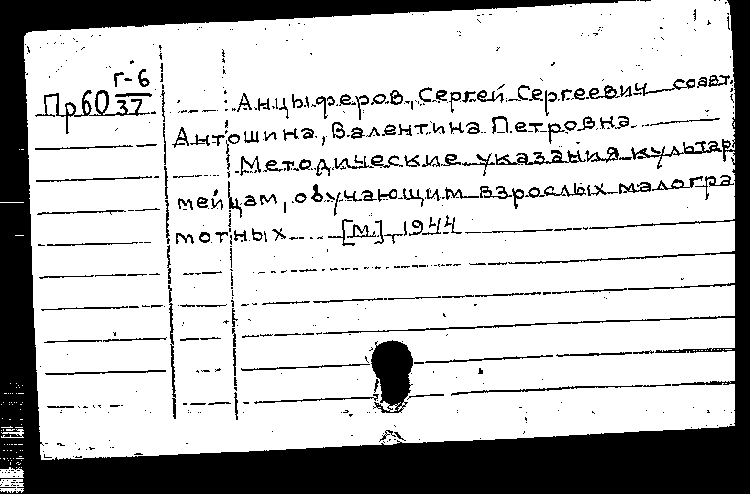 Г-6
Пр60 37
Анцыферов, Сергей Сергеевич соавт.
Антошина, Валентина Петровна
Методические указания культар
мейцам, обучающим взрослых малогра
мотных [М.], 1944